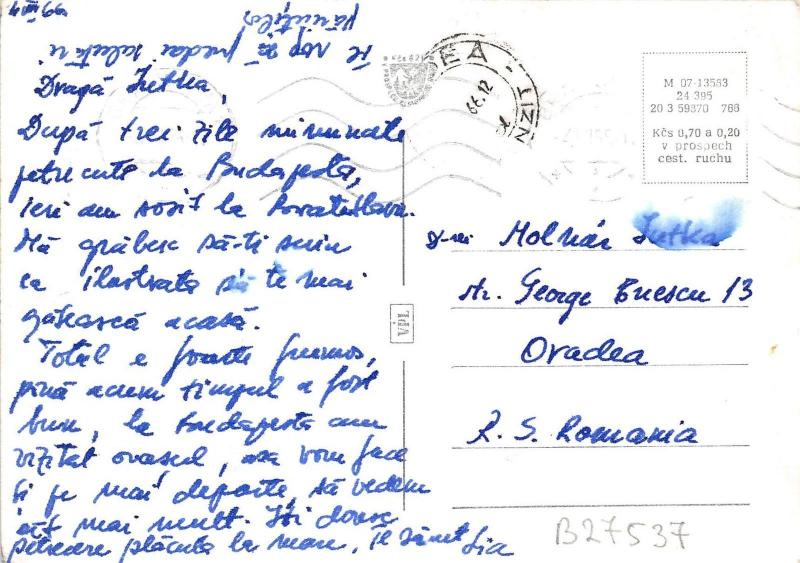 te rog să predai salutări
părinților
Dragă Jutka,
După trei zile minunate
petrecute la Budapesta,
ieri am sosit la Bratislava.
Mă grăbesc să-ți scriu
ca ilustrata să te mai
găsească acasă.
Total e foarte frumos,
pînă acum timpul a fost
bun, la Budapesta am
vizitat orașul, așa vom face
și pe mai departe, să vedem
cît mai mult. Îți doresc
petrecere plăcută la mare, te sărut
Lia
M 07-13583
24 395
20 3 59370 766
Kčs 0,70 a 0,20
v prospech
cest. ruchu
VPL
D-rei Molnár Jutka
str. George Enescu 13
Oradea
R. S. Romania
B27537